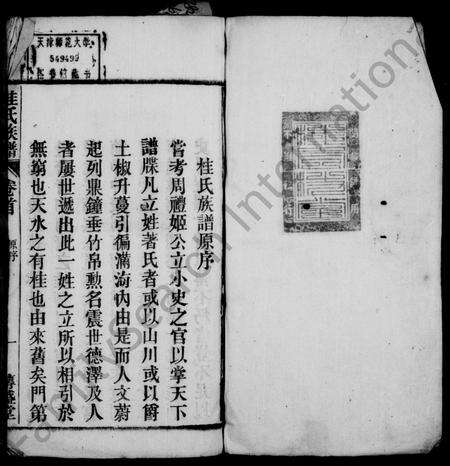 桂氏族譜原序
嘗考周禮姬公立小史之官以掌天下
譜牒凡立姓著氏者或以山川或以爵
土椒升蔓引徧滿海內由是而人文蔚
起列鼎鐘垂竹帛勲名震世德澤及人
者屢世遞出此一姓之立所以相引於
無窮也天水之有桂也由來舊矣門第
桂氏族譜
卷首
原序
一
天津師范大学
549493
FamilySearch International